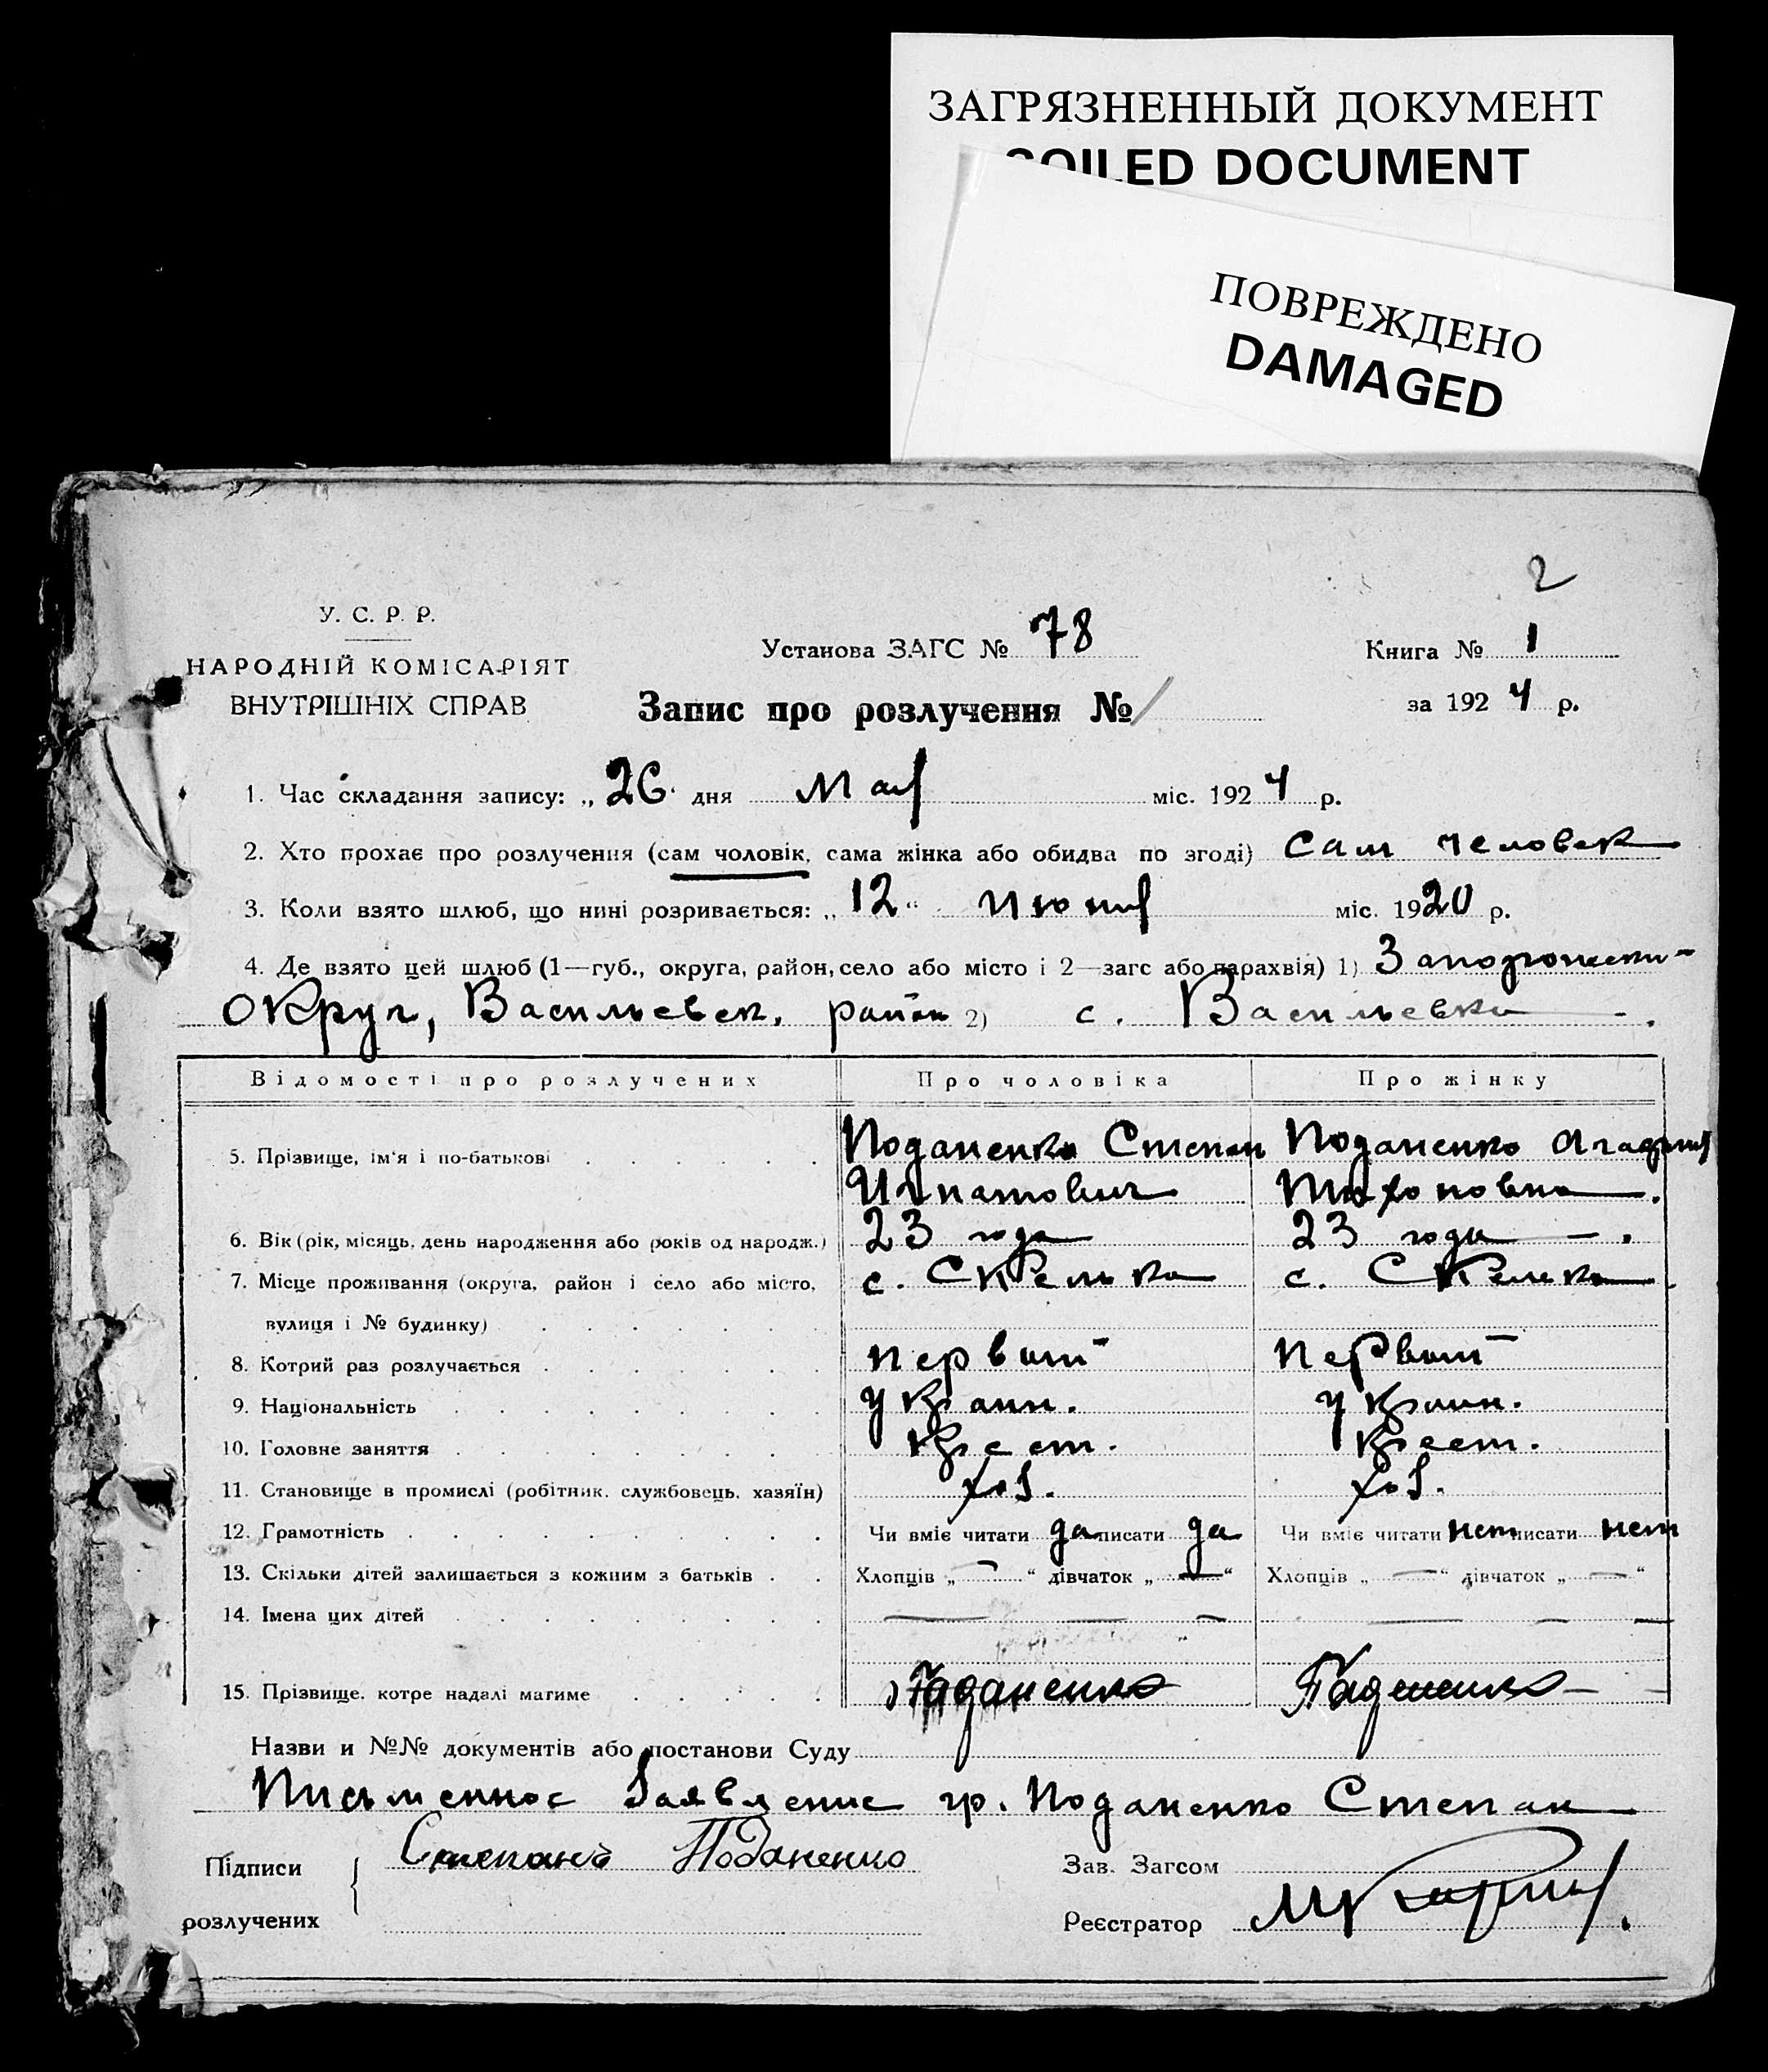 ЗАГРЯЗНЕННЫЙ ДОКУМЕНТ
SOILED DOCUMENT
ПОВРЕЖДЕНО
DAMAGED
2
У. С. Р. Р.
НАРОДНІЙ КОМІСАРІЯТ
ВНУТРІШНІХ СПРАВ
Установа ЗАГС № 78
Книга № 1
за 1924 р.
Запис про розлучення № 1
1. Час складання запису: „ 26 дня Мая міс. 1924 р.
2. Хто прохає про розлучення (сам чоловік, сама жінка або обидва по згоді) Сам человек
3. Коли взято шлюб, що нині розривається: „ 12 “ Июня міс. 1920 р.
4. Де взято цей шлюб (1—губ., округа, район, село або місто і 2—загс або парахвія) 1) Запорожский
округ, Васильевск. район 2) с. Васильевка
Відомості про розлучених Про чоловіка Про жінку
5. Прізвище, ім‘я і по-батькові Поданенко Степан Поданенко Агафия
Игнатович Тихоновна
6. Вік (рік, місяць, день народження або років од народж.) 23 года 23 года
7. Місце проживання (округа, район і село або місто, с. Скелька с. Скелька
вулиця і № будинку)
8. Котрий раз розлучається первый первый
9. Національність Украин. Украин.
10. Головне заняття Крест. Крест.
11. Становище в промислі (робітник, службовець, хазяїн) хоз. хоз.
12. Грамотність Чи вміє читати да писати да Чи вміє читати нет писати нет
13. Скільки дітей залишається з кожним з батьків Хлопців „ — “ дівчаток „ — “ Хлопців „ — “ дівчаток „ — “
14. Імена цих дітей — — — — — —
15. Прізвище, котре надалі матиме Паданенко
Назви и №№ документів або постанови Суду
Письменное Заявление гр. Поданенко Степан
Підписи
розлучених
Степанъ Поданенко
Зав. Загсом
Реєстратор